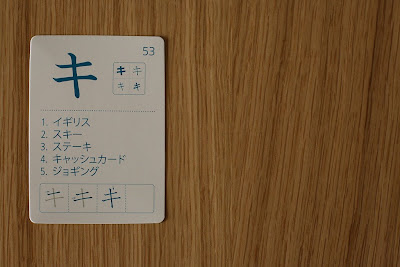 53
キ
キ キ
キ キ
1. イギリス
2. スキー
3. ステーキ
4. キャッシュカード
5. ジョギング
キ キ キ